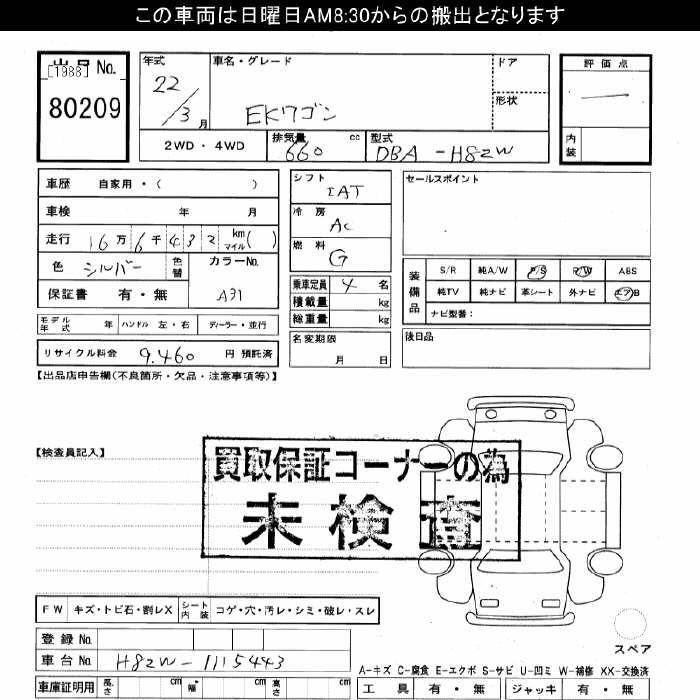 この車両は日曜日AM8:30からの搬出となります
[1988] 出品 No.
80209
年式 22/3月
車名・グレード EKワゴン
ドア
形状
評価点 —
内装
2WD・4WD
排気量 660 cc
型式 DBA-H82W
車歴 自家用・( )
車検 年 月
走行 16万6千432 km マイル( )
色 シルバー 色替
カラーNo. A31
保証書 有・無
モデル年式 年 ハンドル 左・右 ディーラー・並行
リサイクル料金 9,460 円 預託済
シフト IAT
冷房 AC
燃料 G
乗車定員 4 名
積載量 kg
総重量 kg
名変期限 月 日
セールスポイント
装備品
S/R 純A/W P/S P/W ABS
純TV 純ナビ 革シート 外ナビ エアB
ナビ型番:
後日品
【出品店申告欄(不良箇所・欠品・注意事項等)】
【検査員記入】
買取保証コーナーの為
未検査
FW キズ・トビ石・割レX シート内装 コゲ・穴・汚レ・シミ・破レ・スレ
登録 No.
車台 No. H82W-1115443
車庫証明用 長さ cm 幅 cm 高さ cm
スペア
A-キズ C-腐食 E-エクボ S-サビ U-凹ミ W-補修 XX-交換済
工具 有・無 ジャッキ 有・無